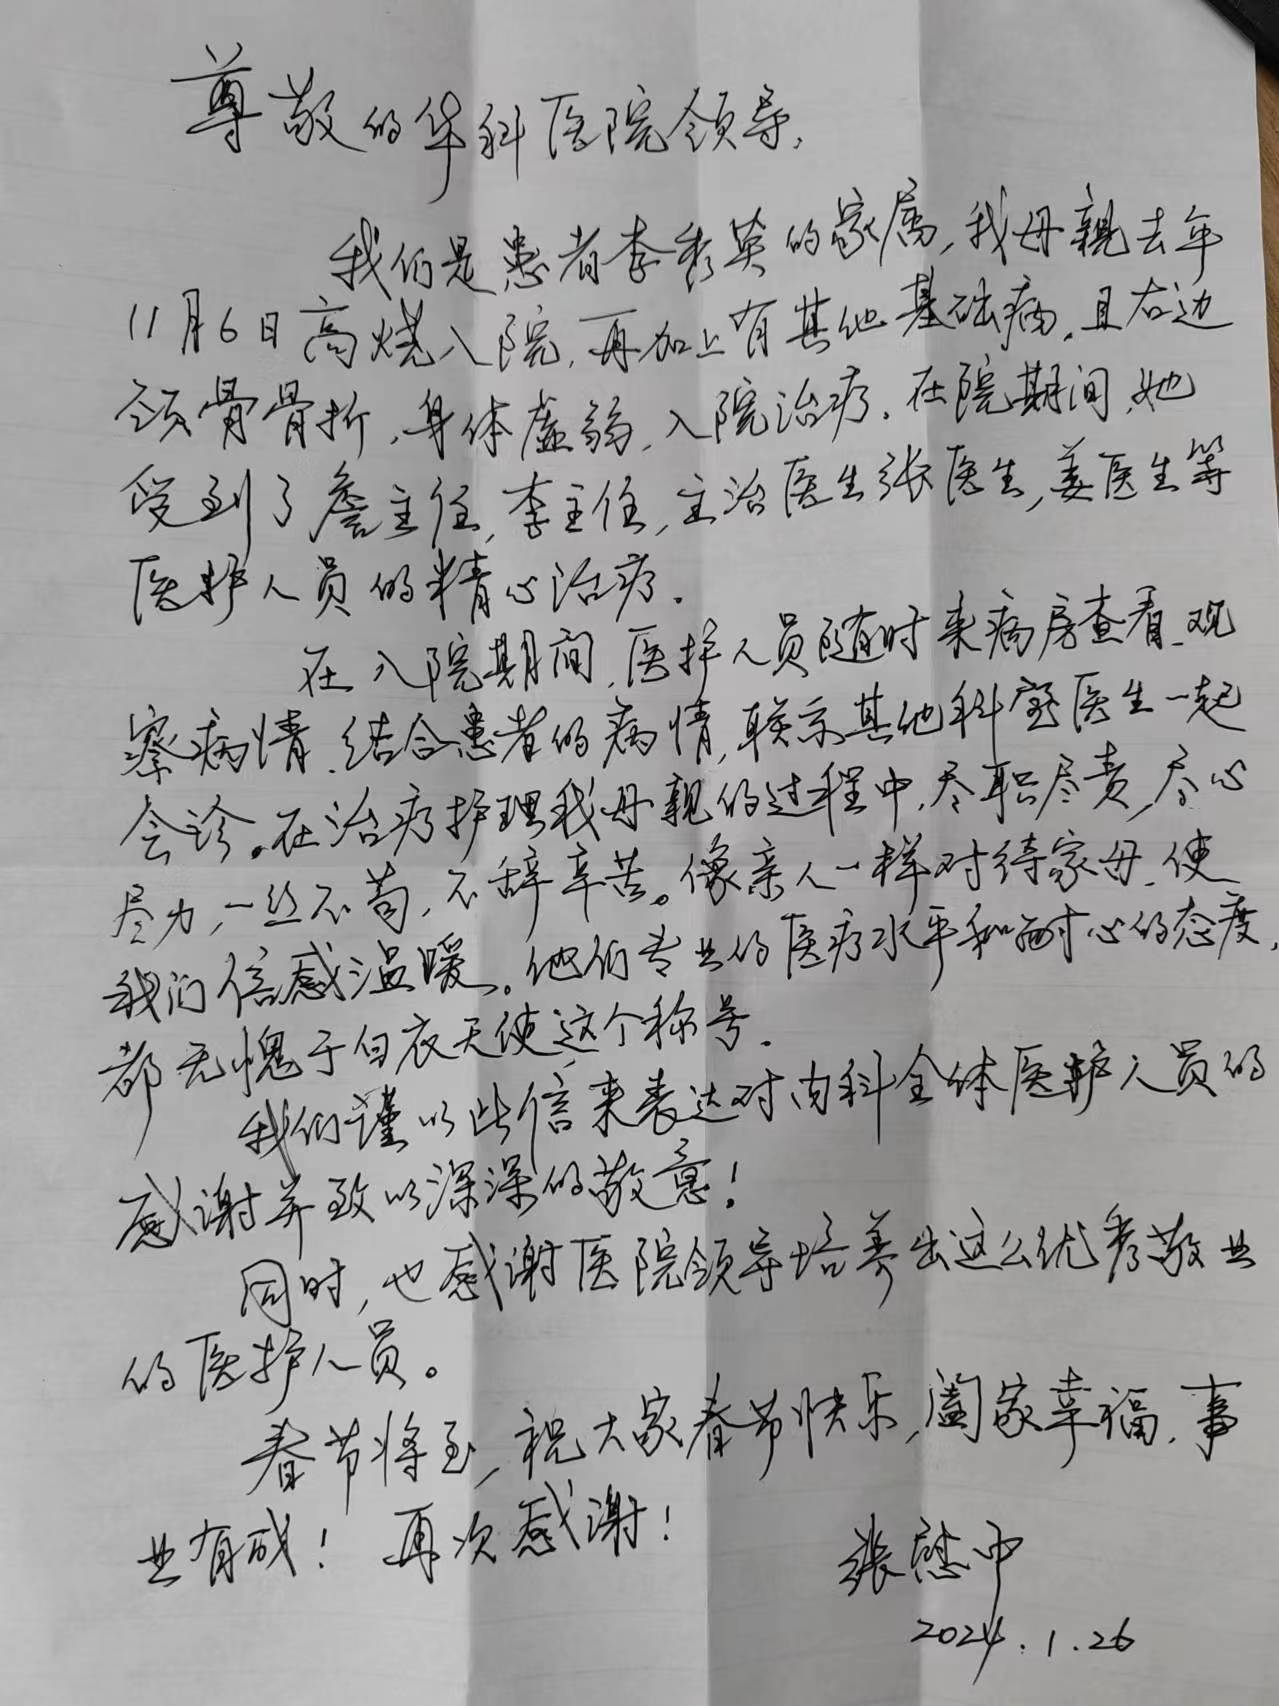 尊敬的华科医院领导,
我们是患者李秀英的家属,我母亲去年
11月6日高烧入院,再加上有其他基础病,且右边
颈骨骨折,身体虚弱,入院治疗.在院期间,她
受到了詹主任,李主任,主治医生张医生,姜医生等
医护人员的精心治疗.
在入院期间,医护人员随时来病房查看、观
察病情、结合患者的病情,联系其他科室医生一起
会诊。在治疗护理我母亲的过程中,尽职尽责,尽心
尽力,一丝不苟,不辞辛苦。像亲人一样对待家母、使
我们倍感温暖。他们专业的医疗水平和耐心的态度,
都无愧于白衣天使这个称号.
我们谨以此信来表达对内科全体医护人员的
感谢并致以深深的敬意!
同时,也感谢医院领导培养出这么优秀敬业
的医护人员。
春节将至,祝大家春节快乐,阖家幸福、事
业有成! 再次感谢!
张 中
2024.1.26